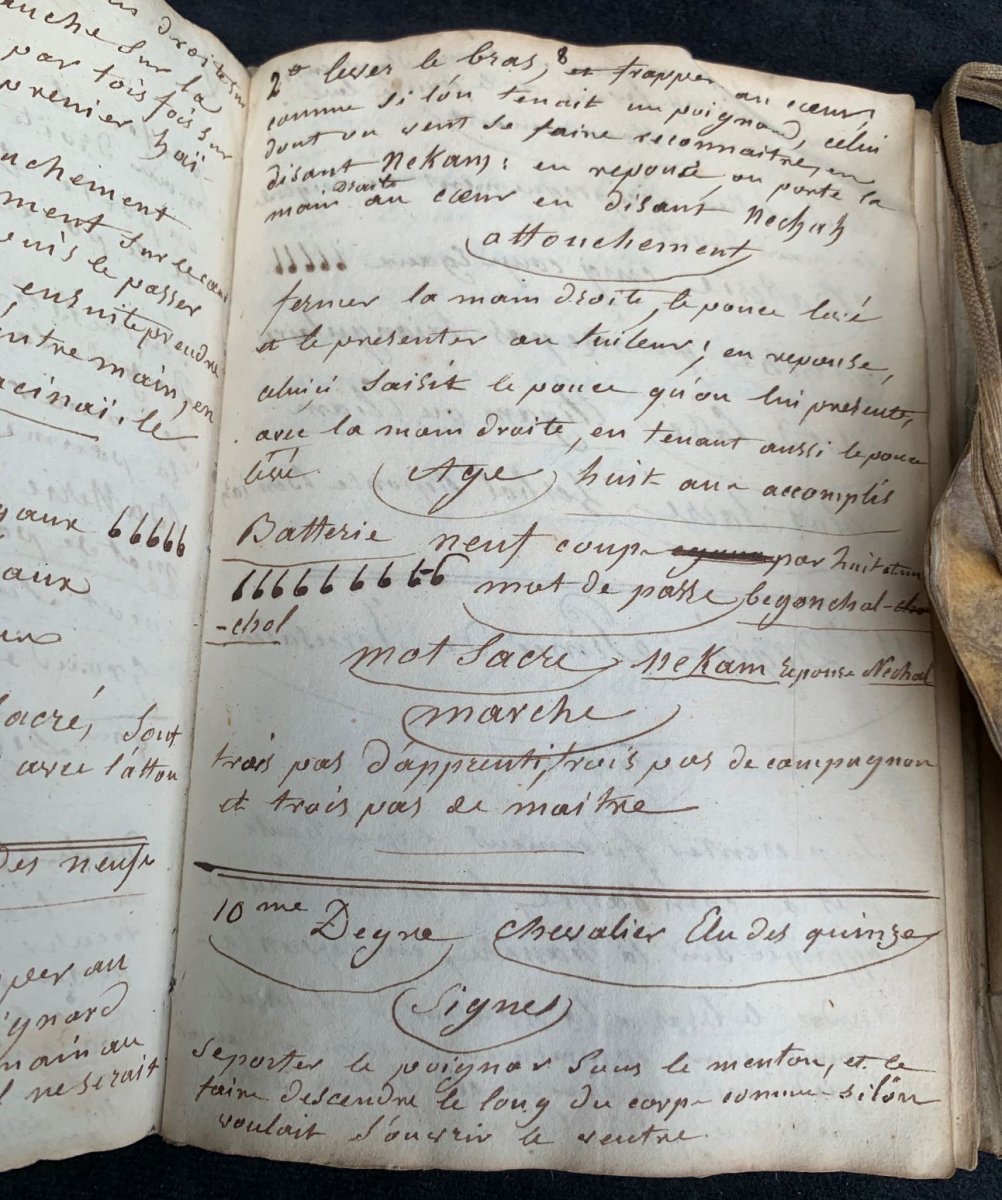 droites sur
uche sur la
par tois fois sur
prenier haï-
uchement
ment sur le cœur
uis le passer
ensuite prendre
autre main, en
acinaï, le
yaux 66666
aux
aux
sacré, sont
avec l'attou
des neuf
per au
ignard
main au
l ne serait
8
2º lever le bras, et frapper au cœur
comme si lón tenait un poignard, célui
dont on veut se faire reconnaitre, en
disant Nekam: en reponse, on porte la
main droite au cœur en disant Nechah
attouchement
fermer la main droite, le pouce lévé
et le presenter au tuileur; en reponse,
célui ci saisit le pouce qu'on lui presente,
avec la main droite, en tenant aussi le pouce
lévé.
Age huit ans accomplis
Batterie neuf coups par huit et un
66666666-6 mot de passe begonchal-cho
-chol
mot Sacré Nekam reponse Nechah
marche
trois pas d'apprenti, trois pas de compagnon
et trois pas de maitre
10me Degré Chevalier Elu des quinze
Signes
se porter le poignar sous le menton, et le
faire descendre le long du corps comme si lón
voulait s'ouvrir le ventre.